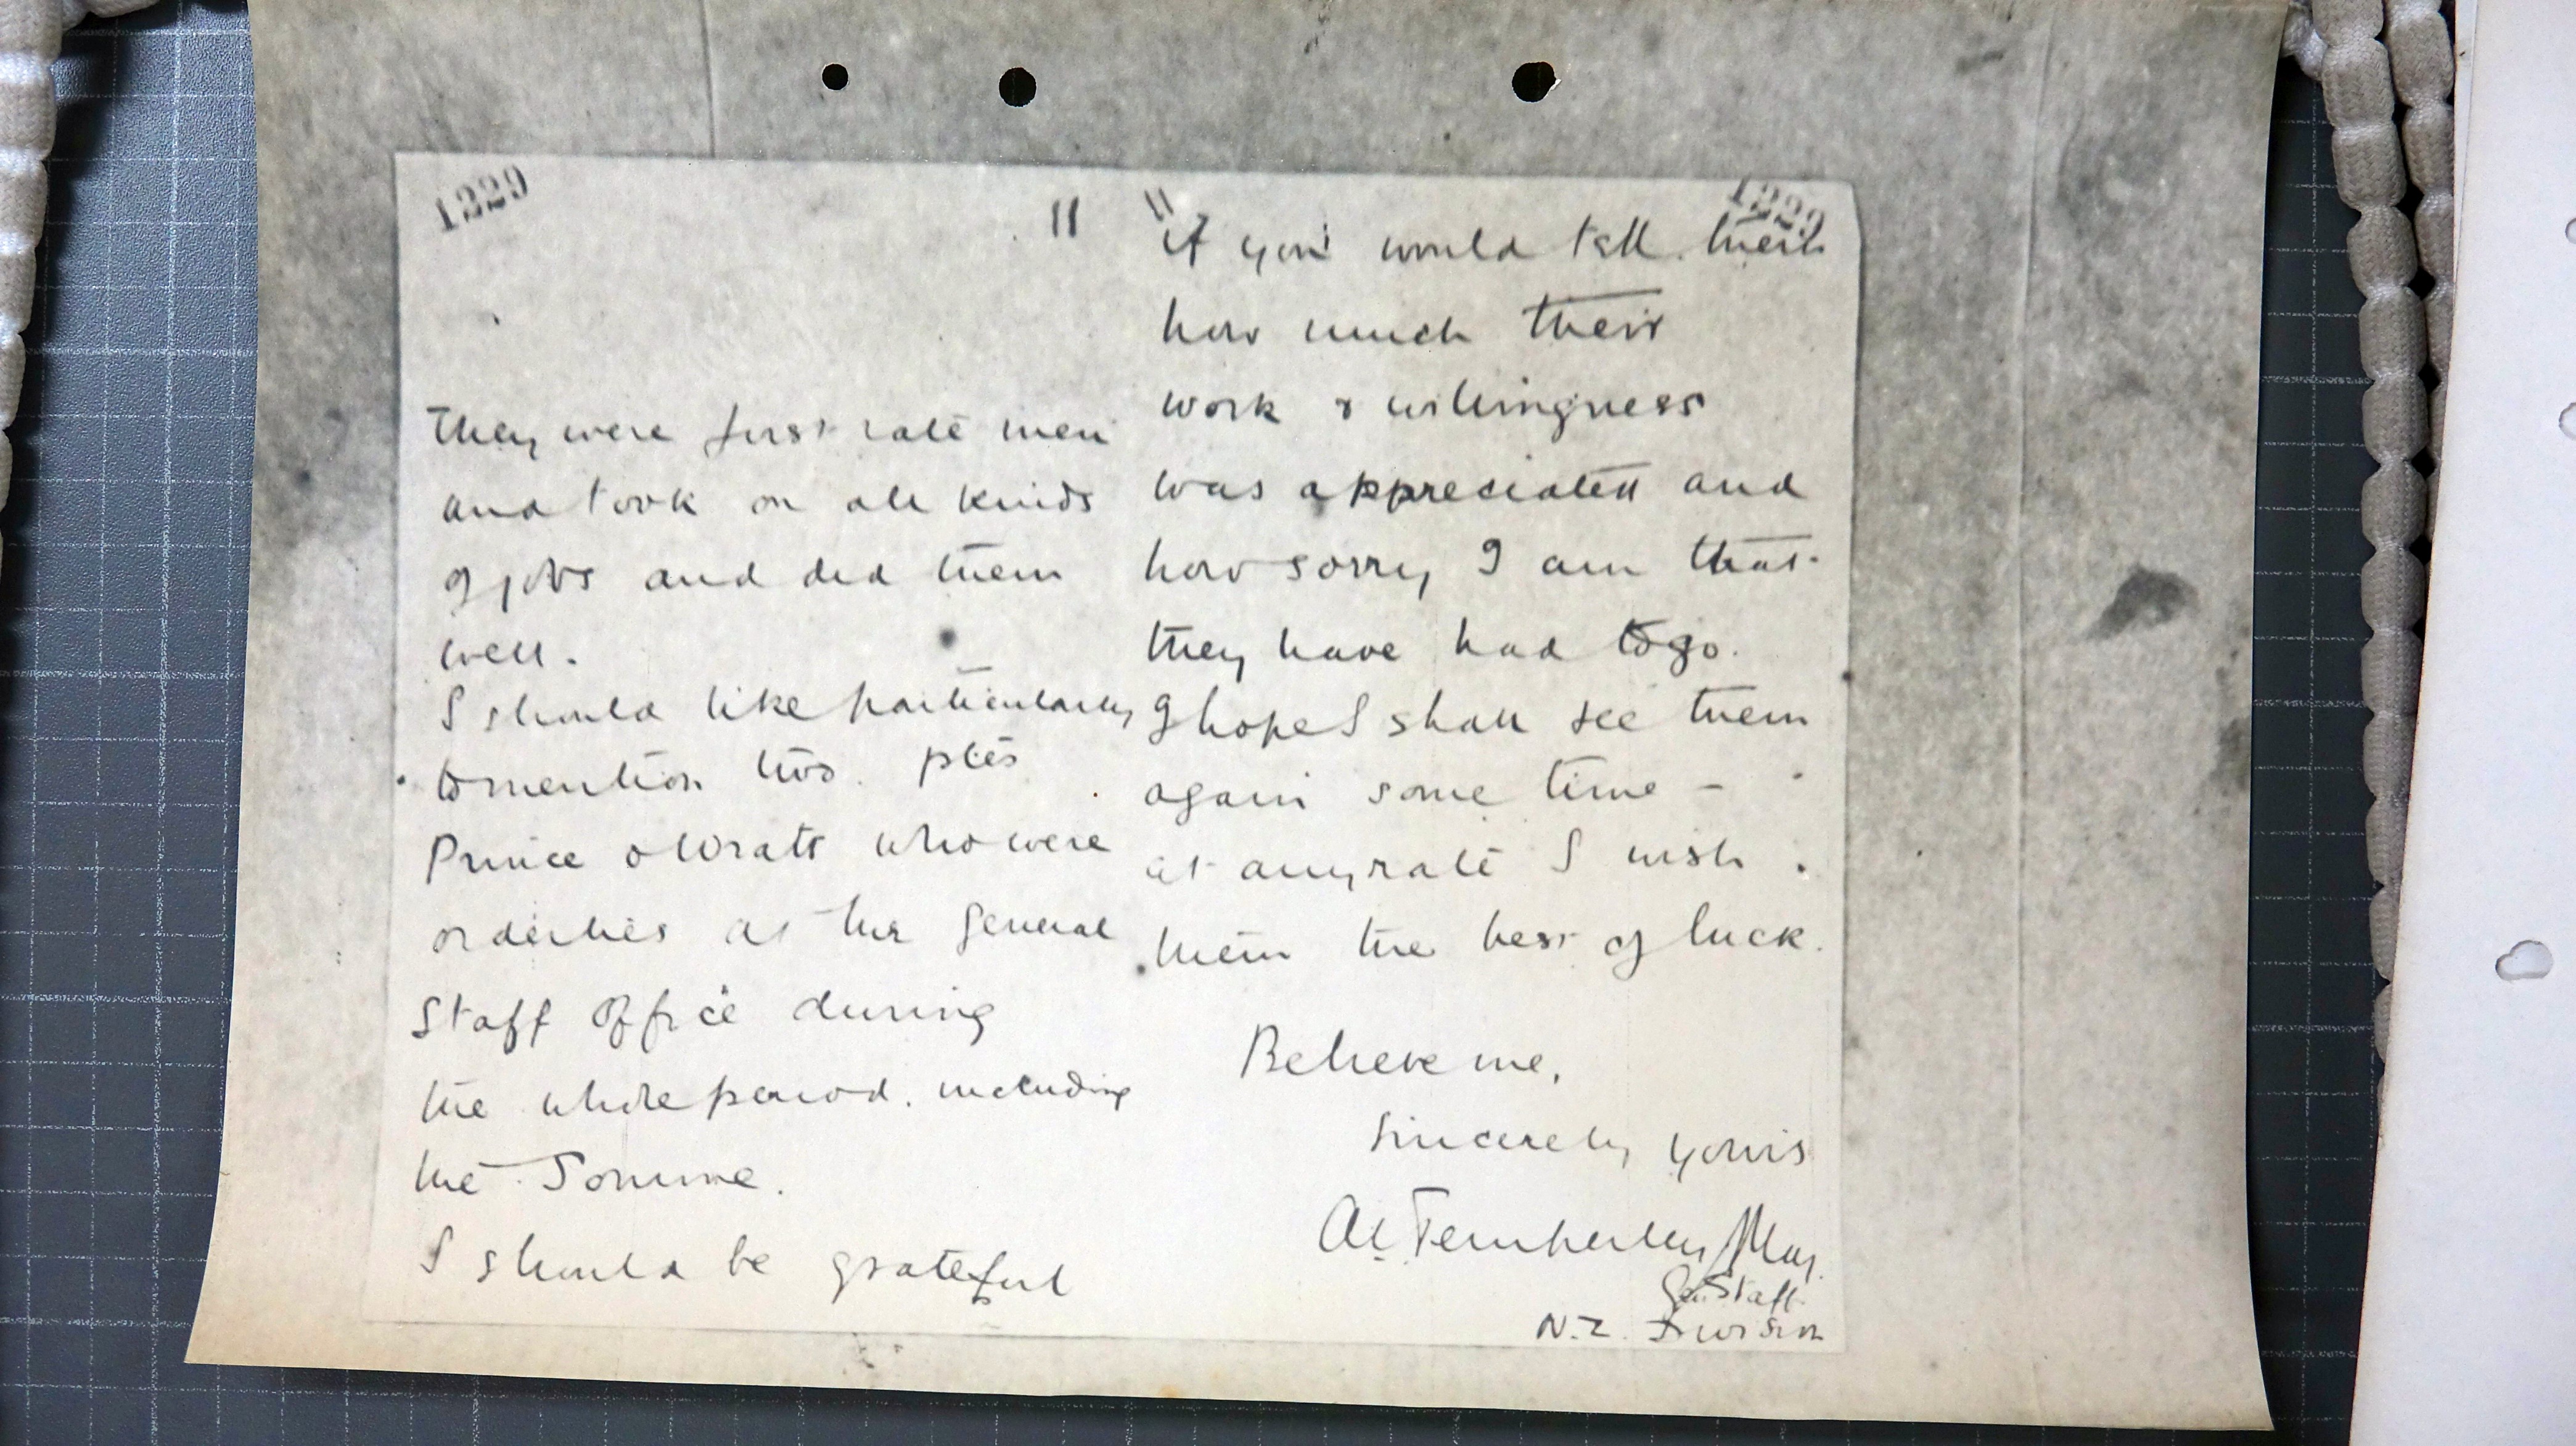 1229
11
They were first rate men
and took on all kinds
of jobs and did them
well.
I should like particularly
to mention two ptes
Prince & Wratt who were
orderlies at the General
Staff Office during
the whole period, including
the Somme.
I should be grateful
11
1229
if you would tell them
how much their
work & willingness
was appreciated and
how sorry I am that
they have had to go.
I hope I shall see them
again some time -
at anyrate I wish
them the best of luck.
Believe me,
Sincerely yours
Temperley Maj.
Gen. Staff
N.Z. Division